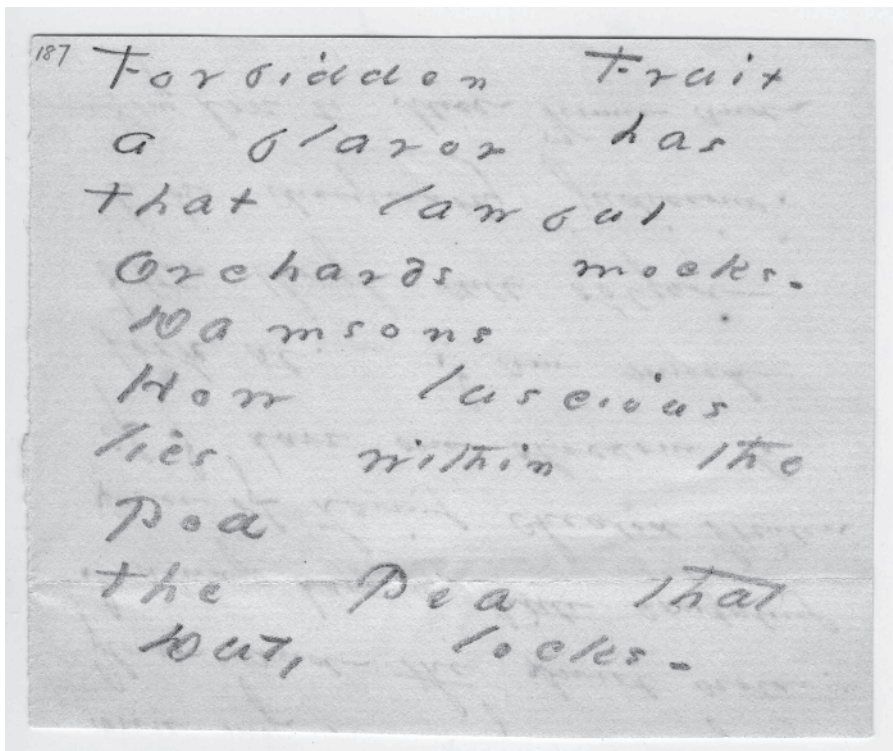 187
Forbidden Fruit
a flavor has
that lawful
Orchards mocks -
Damsons
How luscious
lies within the
Pod
the Pea that
Duty locks -